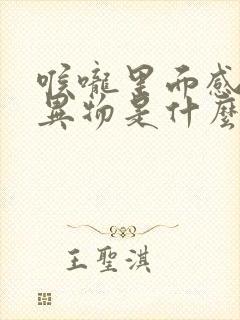 喉嚨里而感
異物是什麼
王聖淇